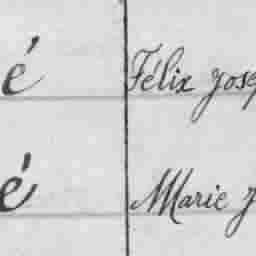 é Félix Jose
é Marie J